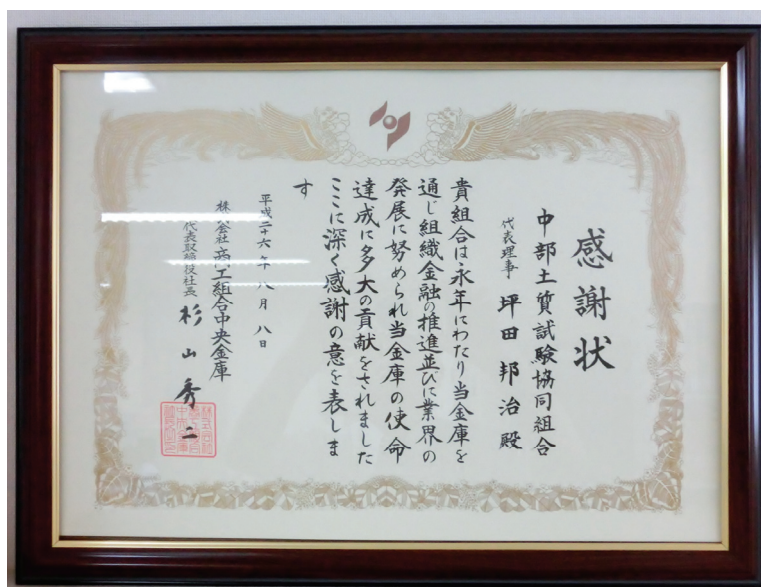 感謝状
中部土質試験協同組合
代表理事 坪田邦治殿
貴組合は永年にわたり当金庫を
通じ組織金融の推進並びに業界の
発展に努められ当金庫の使命
達成に多大の貢献をされました
ここに深く感謝の意を表しま
す
平成二十六年八月八日
株式会社商工組合中央金庫
代表取締役社長 杉山秀二